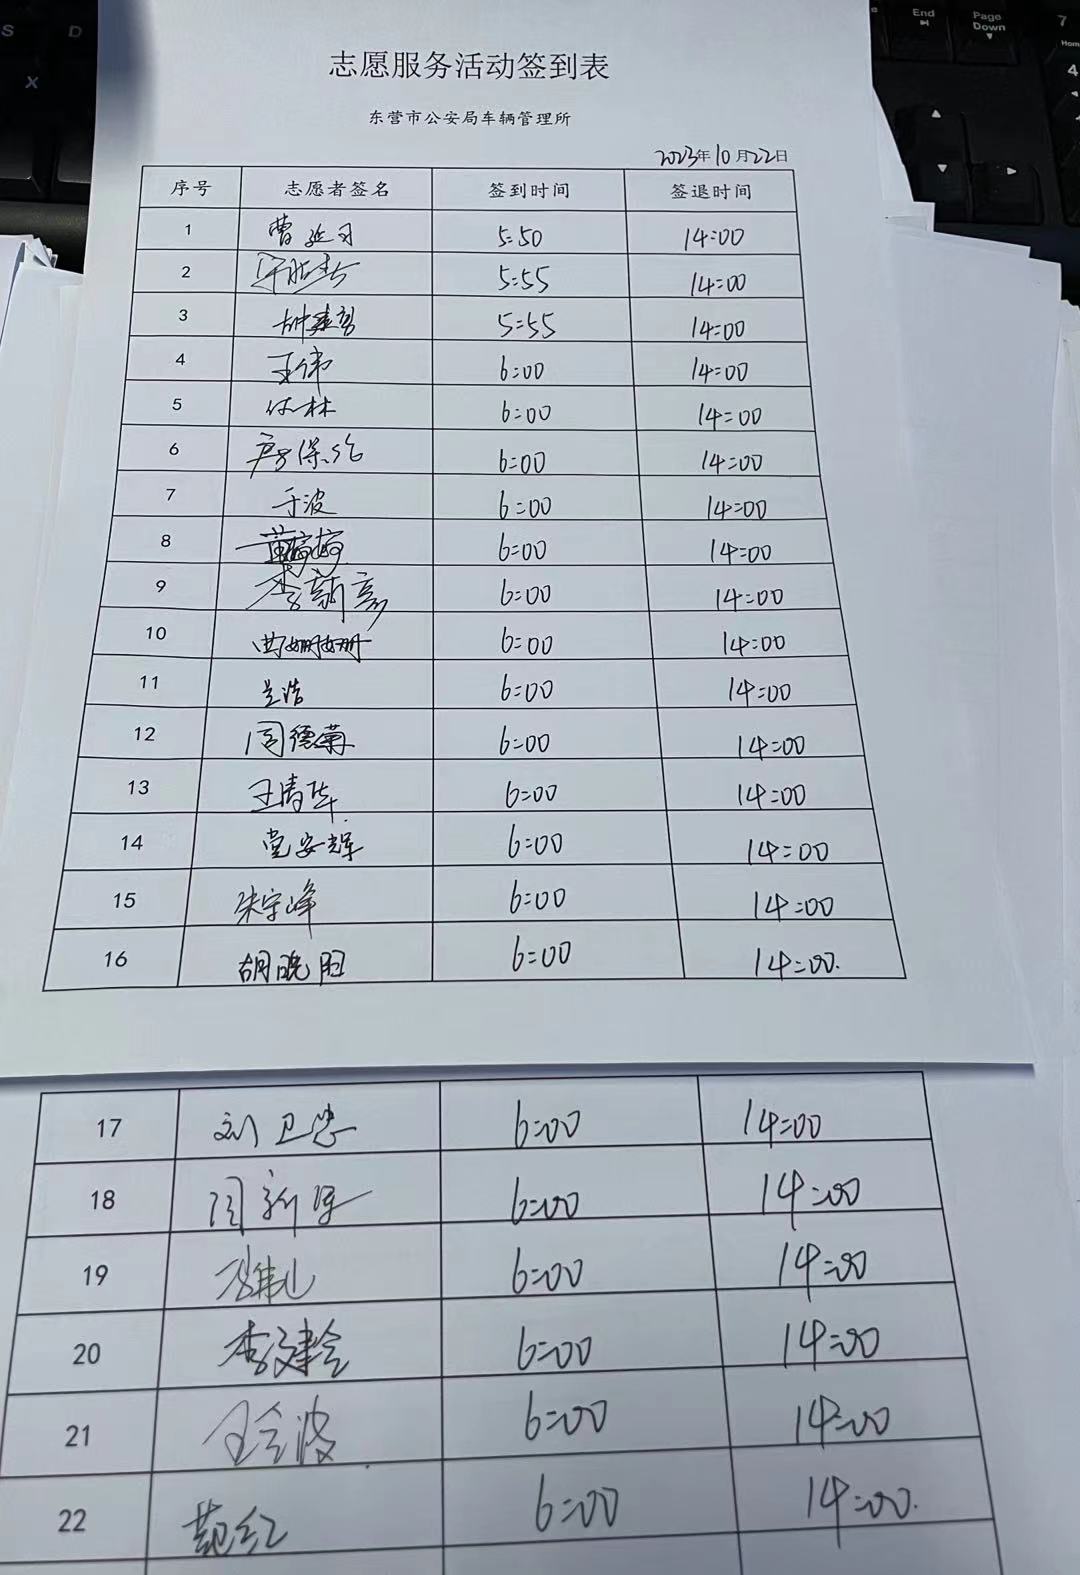 志愿服务活动签到表
东营市公安局车辆管理所
2023年10月22日
序号 志愿者签名 签到时间 签退时间
1 曹延习 5:50 14:00
2 5:55 14:00
3 5:55 14:00
4 王伟 6:00 14:00
5 任林 6:00 14:00
6 6:00 14:00
7 于波 6:00 14:00
8 董婷婷 6:00 14:00
9 李新亮 6:00 14:00
10 曲姗姗 6:00 14:00
11 兰浩 6:00 14:00
12 闫德菊 6:00 14:00
13 王清华 6:00 14:00
14 党安辉 6:00 14:00
15 朱宇峰 6:00 14:00
16 胡晓阳 6:00 14:00.
17 刘卫忠 6:00 14:00
18 6:00 14:00
19 6:00 14:00
20 李建玲 6:00 14:00
21 王会波 6:00 14:00
22 范红 6:00 14:00.
S
D
X
End
Page
Down
7
4